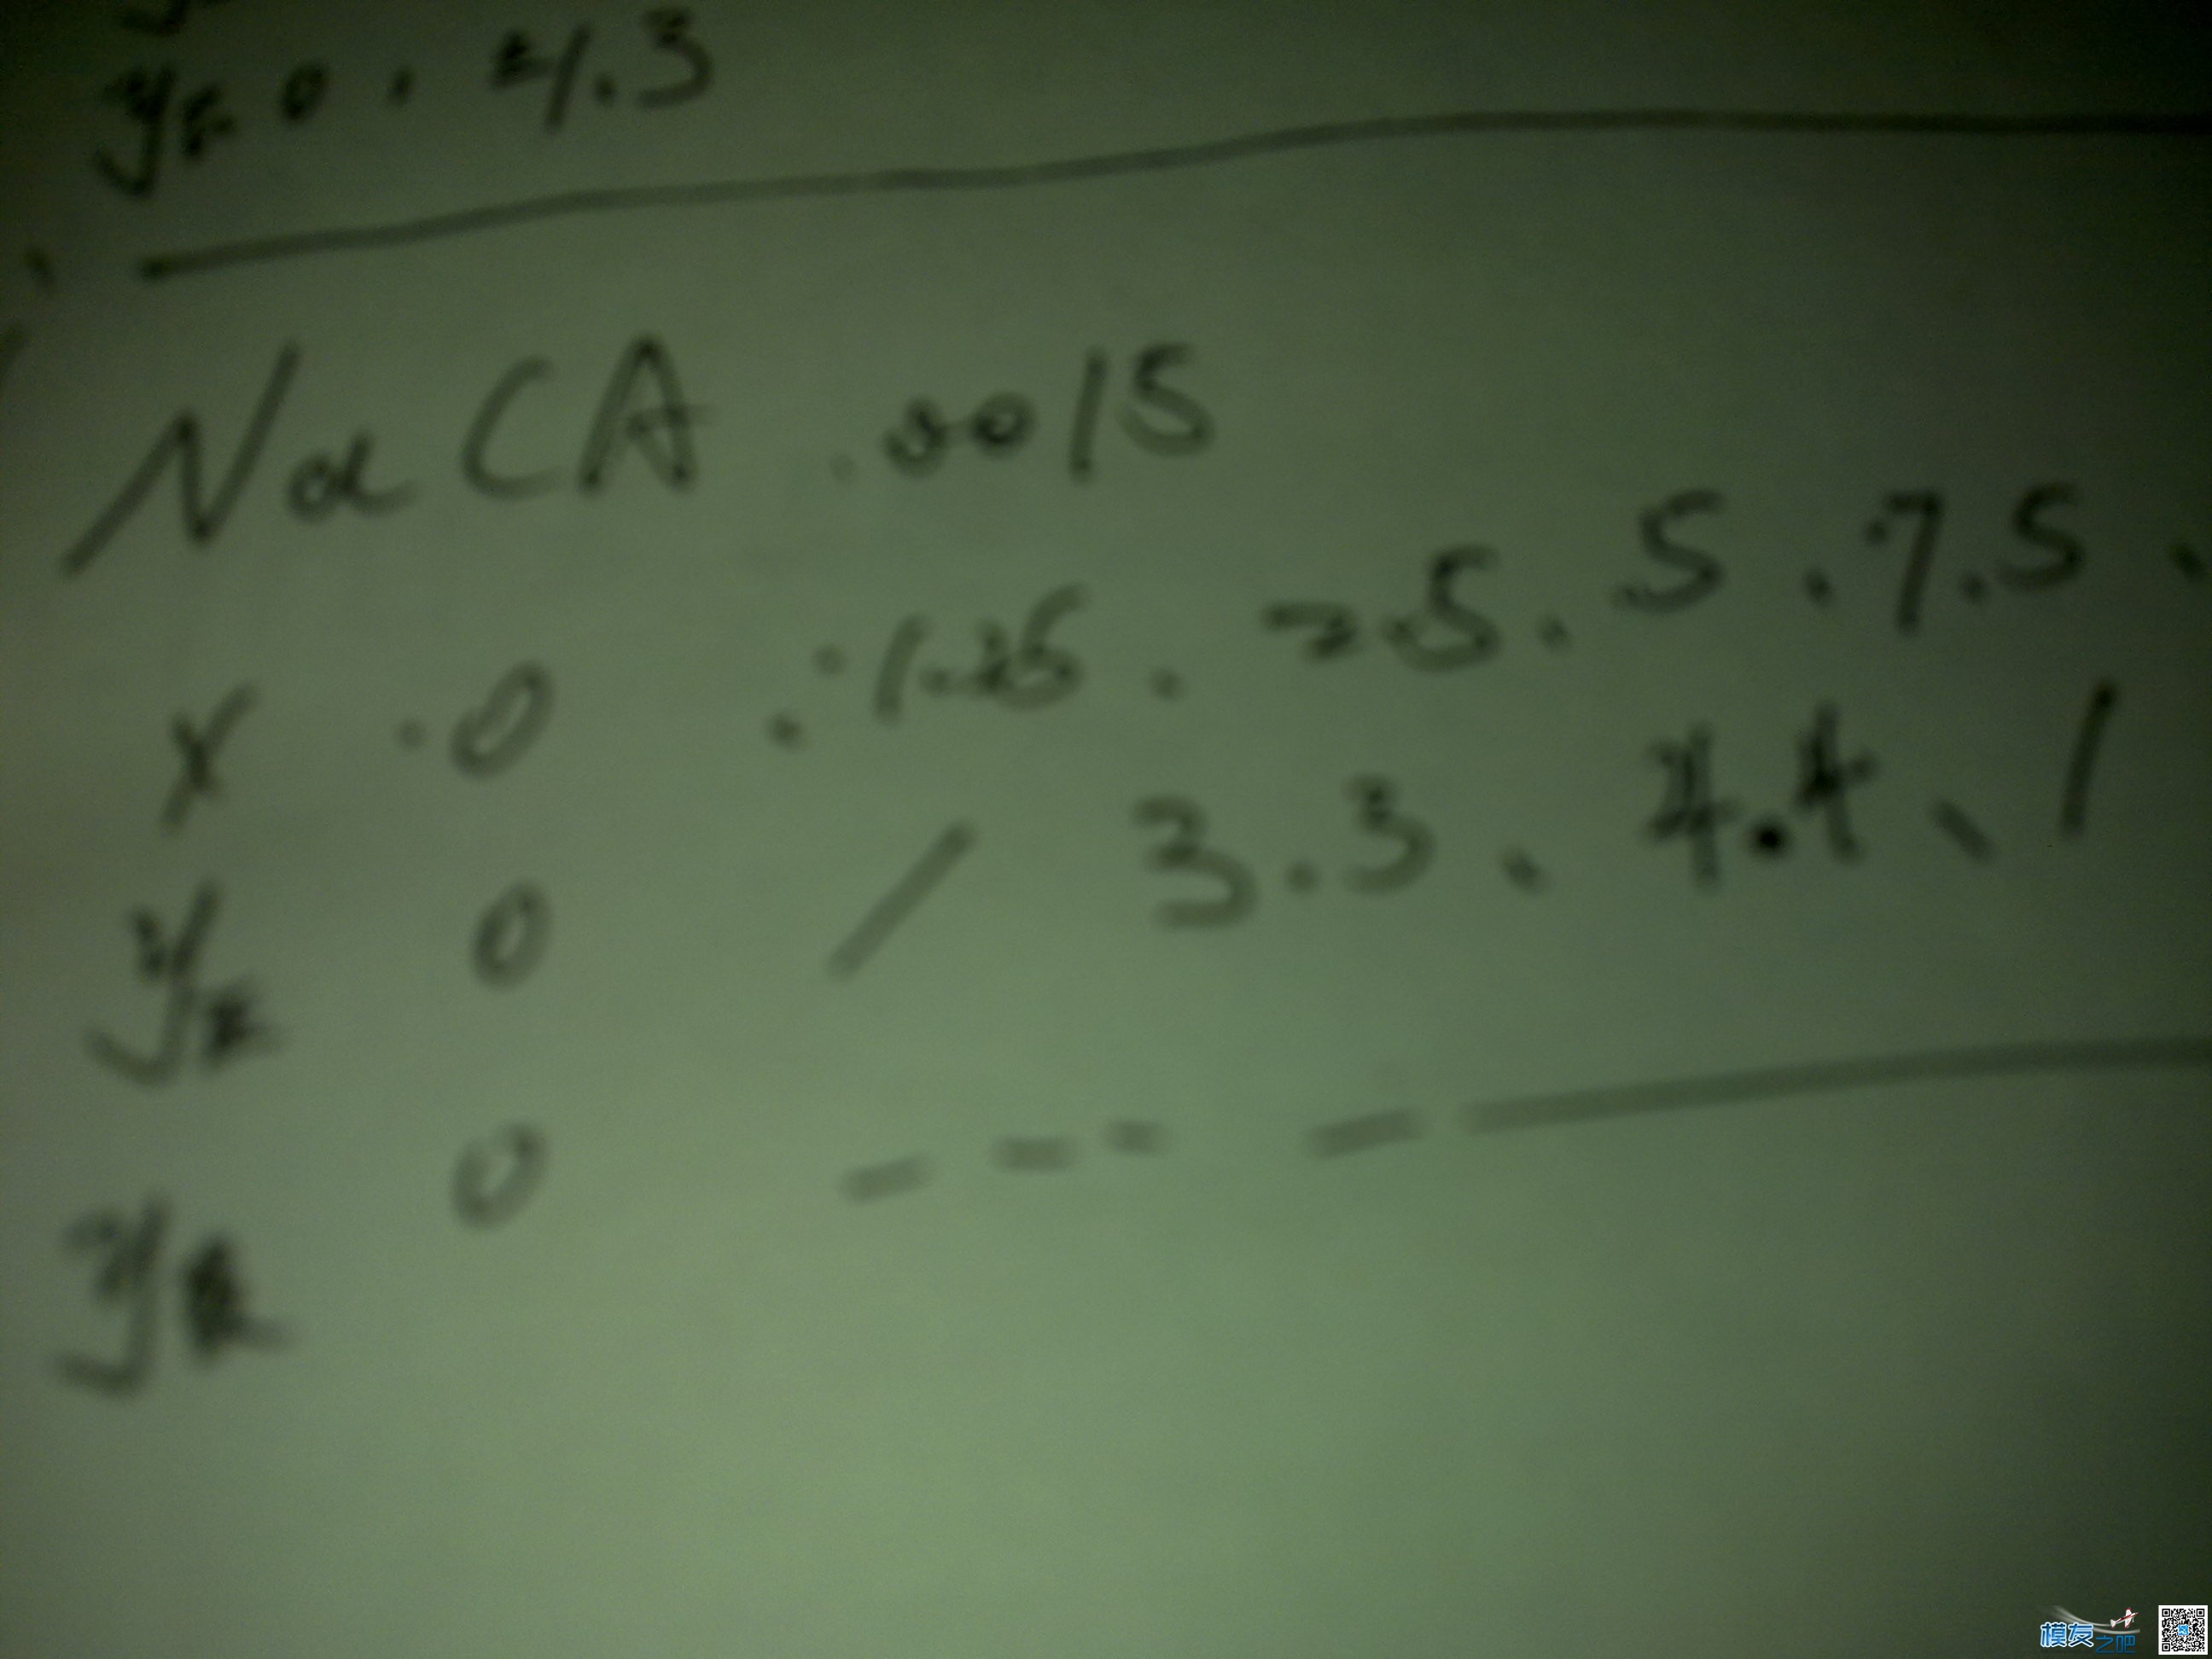 y下 0 . 4.3
NaCA .0015
x . 0 . 1.25 . 2.5 . 5 . 7.5 .
y上 0 / 3.3 . 4.4 、 1
y下 0 — — — — —
模友之吧